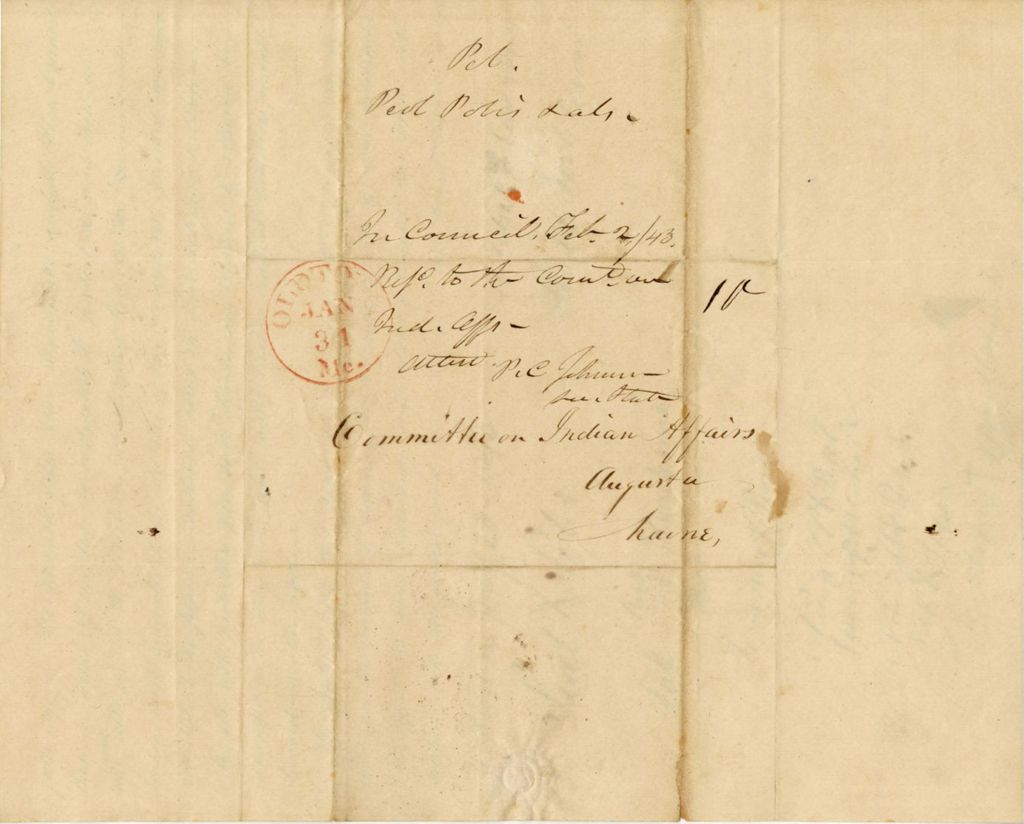 Pet.
Peol Polis & als.
In Council, Feb. 2/43.
Refd. to the Com. on
Ind. Affs -
Attest. P. C. Johnson
Sec. State
10
OLDTOWN
JAN
31
Me.
Committee on Indian Affairs
Augusta
Maine,